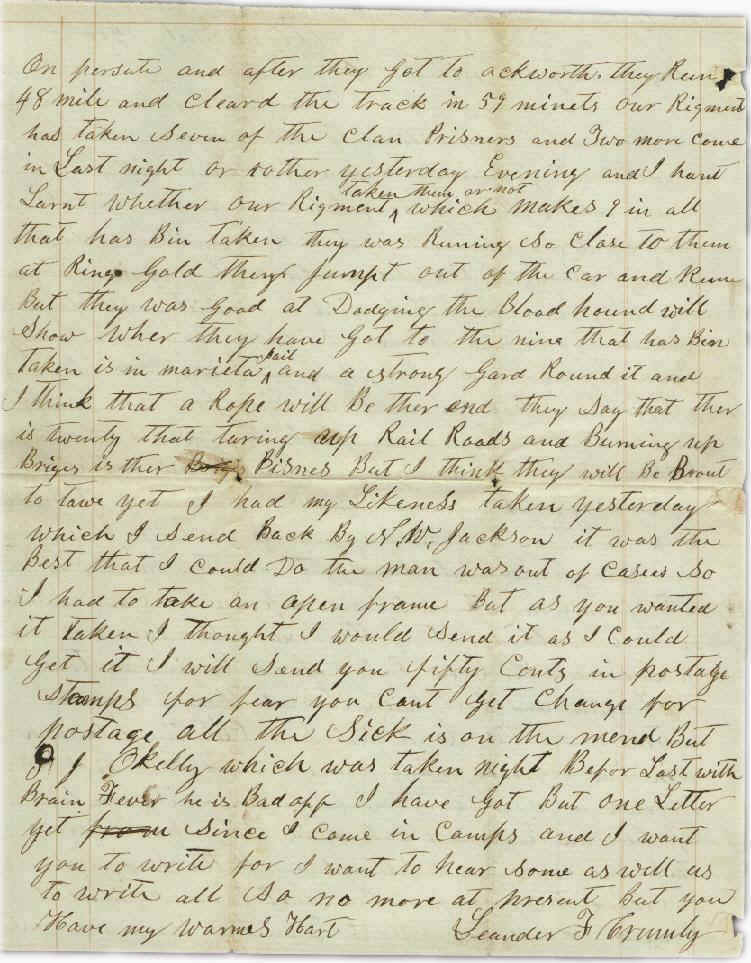 On persute and after they Got to ackworth. they Run
48 mile and Cleard the track in 59 minets our Rigment
has taken Seven of the Clan Prisners and Two more Come
in Last night or rather yesterday Evening and I hant
Larnt whether our Rigment taken them or not which makes 9 in all
that has Bin taken they was Runing So Close to them
at Ringo Gold they Jumpt out of the Car and Run
But they was Good at Dodging the Blood hound will
Show wher they have Got to the nine that has Bin
taken is in marieta Jail and a strong Gard Round it and
I think that a Rope will Be ther end they Say that ther
is twenty that taring up Rail Roads and Burning up
Briges is ther Bisnes But I think they will Be Brout
to tawe yet I had my Likeness taken yesterday
which I Send Back By N. W. Jackson it was the
Best that I Could Do the man was out of Cases So
I had to take an open frame But as you wanted
it taken I thought I would Send it as I Could
Get it I will Send you fifty Cents in postage
Stamps for fear you Cant Get Change for
postage all the Sick is on the mend But
J Okelly which was taken night Befor Last with
Brain Fever he is Bad off I have Got But one Letter
yet from Since I Come in Camps and I want
you to write for I want to hear Some as well us
to write all So no more at present but you
Have my warmes Hart Leander F Crumly